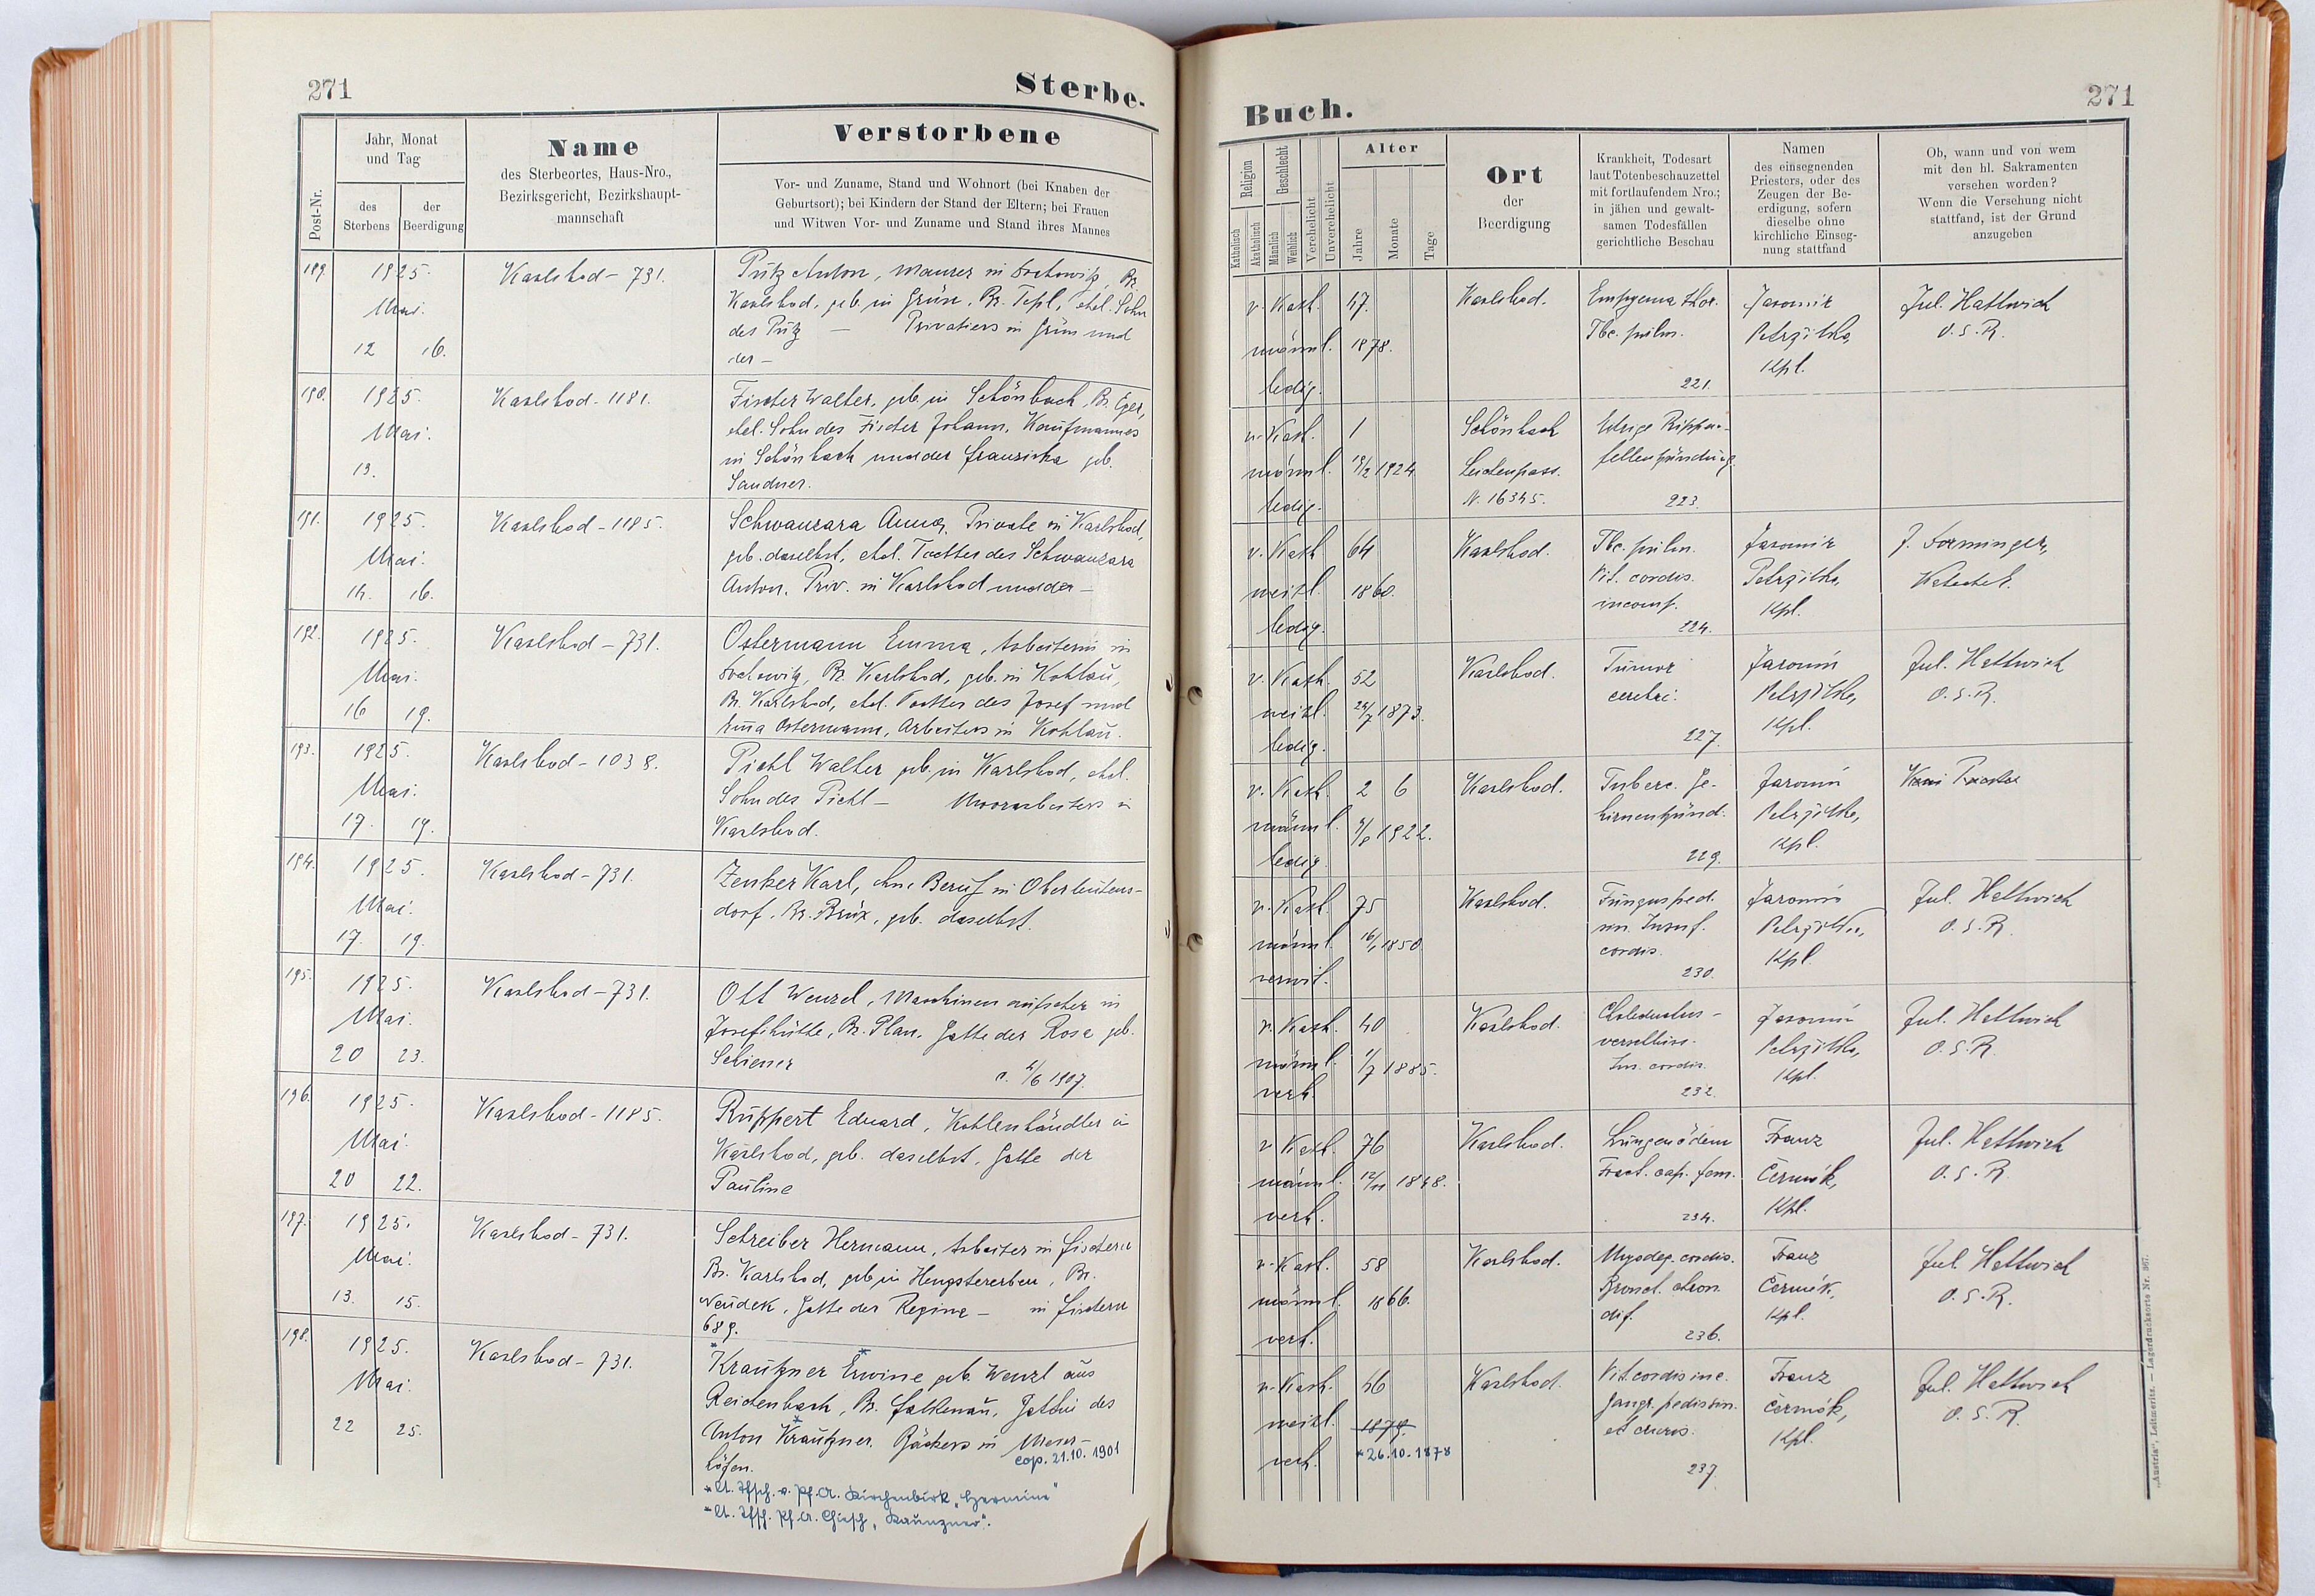 271
Sterbe-
Post-Nr.
Jahr, Monat
und Tag
des
Sterbens
der
Beerdigung
Name
des Sterbeortes, Haus-Nro.,
Bezirksgericht, Bezirkshaupt-
mannschaft
Verstorbene
Vor- und Zuname, Stand und Wohnort (bei Knaben der
Geburtsort); bei Kindern der Stand der Eltern; bei Frauen
und Witwen Vor- und Zuname und Stand ihres Mannes
189. 1925. Karlsbad - 731. Pütz Anton, Maurer in Br.
Mai. Karlsbad, geb. in Grün, Br. Tepl, ehel. Sohn
des Pütz — Privatiers in Grün und
12 16. der —
190. 1925. Karlsbad - 1181. Fischer Walter, geb. in Schönbach, Br. Eger,
Mai. ehel. Sohn des Fischer Johann, Kaufmannes
in Schönbach und der Franziska geb.
13. Sandner.
191. 1925. Karlsbad - 1185. Schwanzara Anna, Private in Karlsbad,
Mai. geb. daselbst, ehel. Tochter des Schwanzara
14. 16. Anton, Priv. in Karlsbad und der —
192. 1925. Karlsbad - 731. Ostermann Emma, Arbeiterin in
Mai. Br. Karlsbad, geb. in Kohlau,
Br. Karlsbad, ehel. Tochter des Josef und
16 19. Ema Ostermann, Arbeiters in Kohlau.
193. 1925. Karlsbad - 1038. Pichl Walter geb. in Karlsbad, ehel.
Mai. Sohn des Pichl — Moorarbeiters in
17. 19. Karlsbad.
194. 1925. Karlsbad - 731. Zenker Karl, ohne Beruf in Oberleutens-
Mai. dorf, Br. Brüx, geb. daselbst.
17. 19.
195. 1925. Karlsbad - 731. Ott Wenzel, Maschinenaufseher in
Mai. Josefihütte, Br. Plan, Gatte der Rosa geb.
20 23. Schiener /6 1907.
196. 1925. Karlsbad - 1185. Ruppert Eduard, Kohlenhändler in
Mai. Karlsbad, geb. daselbst, Gatte der
20 22. Pauline
197. 1925. Karlsbad - 731. Schreiber Hermann, Arbeiter in Fischern
Mai. Br. Karlsbad, geb. in Hengstererben, Br.
13. 15. Neudek, Gatte der Regina — in Fischern
689.
198. 1925. Karlsbad - 731. *Krautzner *Erwine geb. Wenzl aus
Mai. Reichenbach, Br. Falkenau, Gattin des
22 25. Anton *Krautzner, Bäckers in Moser-
höfen. cop. 21.10.1901
* lt. Pf. A. Kirchenbirk "Hermine"
* lt. Pf. A. Chiesch "Kaunzner".
Buch.
271
Religion
Katholisch
Akatholisch
Geschlecht
Männlich
Weiblich
Verehelicht
Unverehelicht
Alter
Jahre
Monate
Tage
Ort
der
Beerdigung
Krankheit, Todesart
laut Totenbeschauzettel
mit fortlaufendem Nro.;
in jähen und gewalt-
samen Todesfällen
gerichtliche Beschau
Namen
des einsegnenden
Priesters, oder des
Zeugen der Be-
erdigung, sofern
dieselbe ohne
kirchliche Einseg-
nung stattfand
Ob, wann und von wem
mit den hl. Sakramenten
versehen worden?
Wenn die Versehung nicht
stattfand, ist der Grund
anzugeben
r. Kath. 47. Karlsbad. Empyema thor. Jaromir Jul. Hattwich
männl. 1878. Tbc. pulm. Petrzilka, O. S. R.
ledig. 221. Kpl.
r. Kath. 1 Schönbach Rippen-
männl. 19/2 1924. Leichenpass. fellentzündung
ledig. N. 16345. 223.
r. Kath. 64 Karlsbad. Tbc. pulm. Jaromir J. Forminger,
weibl. 1860. Vit. cordis. Petrzilka, Katechet.
ledig. incomp. 224. Kpl.
r. Kath. 52 Karlsbad. Tumor Jaromir Jul. Hattwich
weibl. 24/7 1873. cerebri. Petrzilka, O. S. R.
ledig. 227. Kpl.
r. Kath. 2 6 Karlsbad. Tuberc. Ge- Jaromir
männl. 1922. hirnentzünd. Petrzilka,
ledig. 229. Kpl.
r. Kath. 75 Karlsbad. Fungus ped. Jaromir Jul. Hattwich
männl. 16/1 1850 Insuf. Petrzilka, O. S. R.
verwit. cordis. 230. Kpl.
r. Kath. 40 Karlsbad. Choleductus- Jaromir Jul. Hattwich
männl. 1/7 1885. Ins. cordis. Petrzilka, O. S. R.
verh. 232. Kpl.
r. Kath. 76 Karlsbad. Lungenödem Franz Jul. Hattwich
männl. 12/11 1848. Fract. cap. fem. Čermák, O. S. R.
verh. 234. Kpl.
r. Kath. 58 Karlsbad. Myodeg. cordis. Franz Jul. Hattwich
männl. 1866. Bronch. chron. Čermák, O. S. R.
verh. dif. 236. Kpl.
r. Kath. 46 Karlsbad. Vit. cordis inc. Franz Jul. Hattwich
weibl. 1879. Gangr. pedis sin. Čermák, O. S. R.
verh. *26.10.1878 et cruris. 237. Kpl.
„Austria“, Leitmeritz. — Lagerdrucksorte Nr. 367.